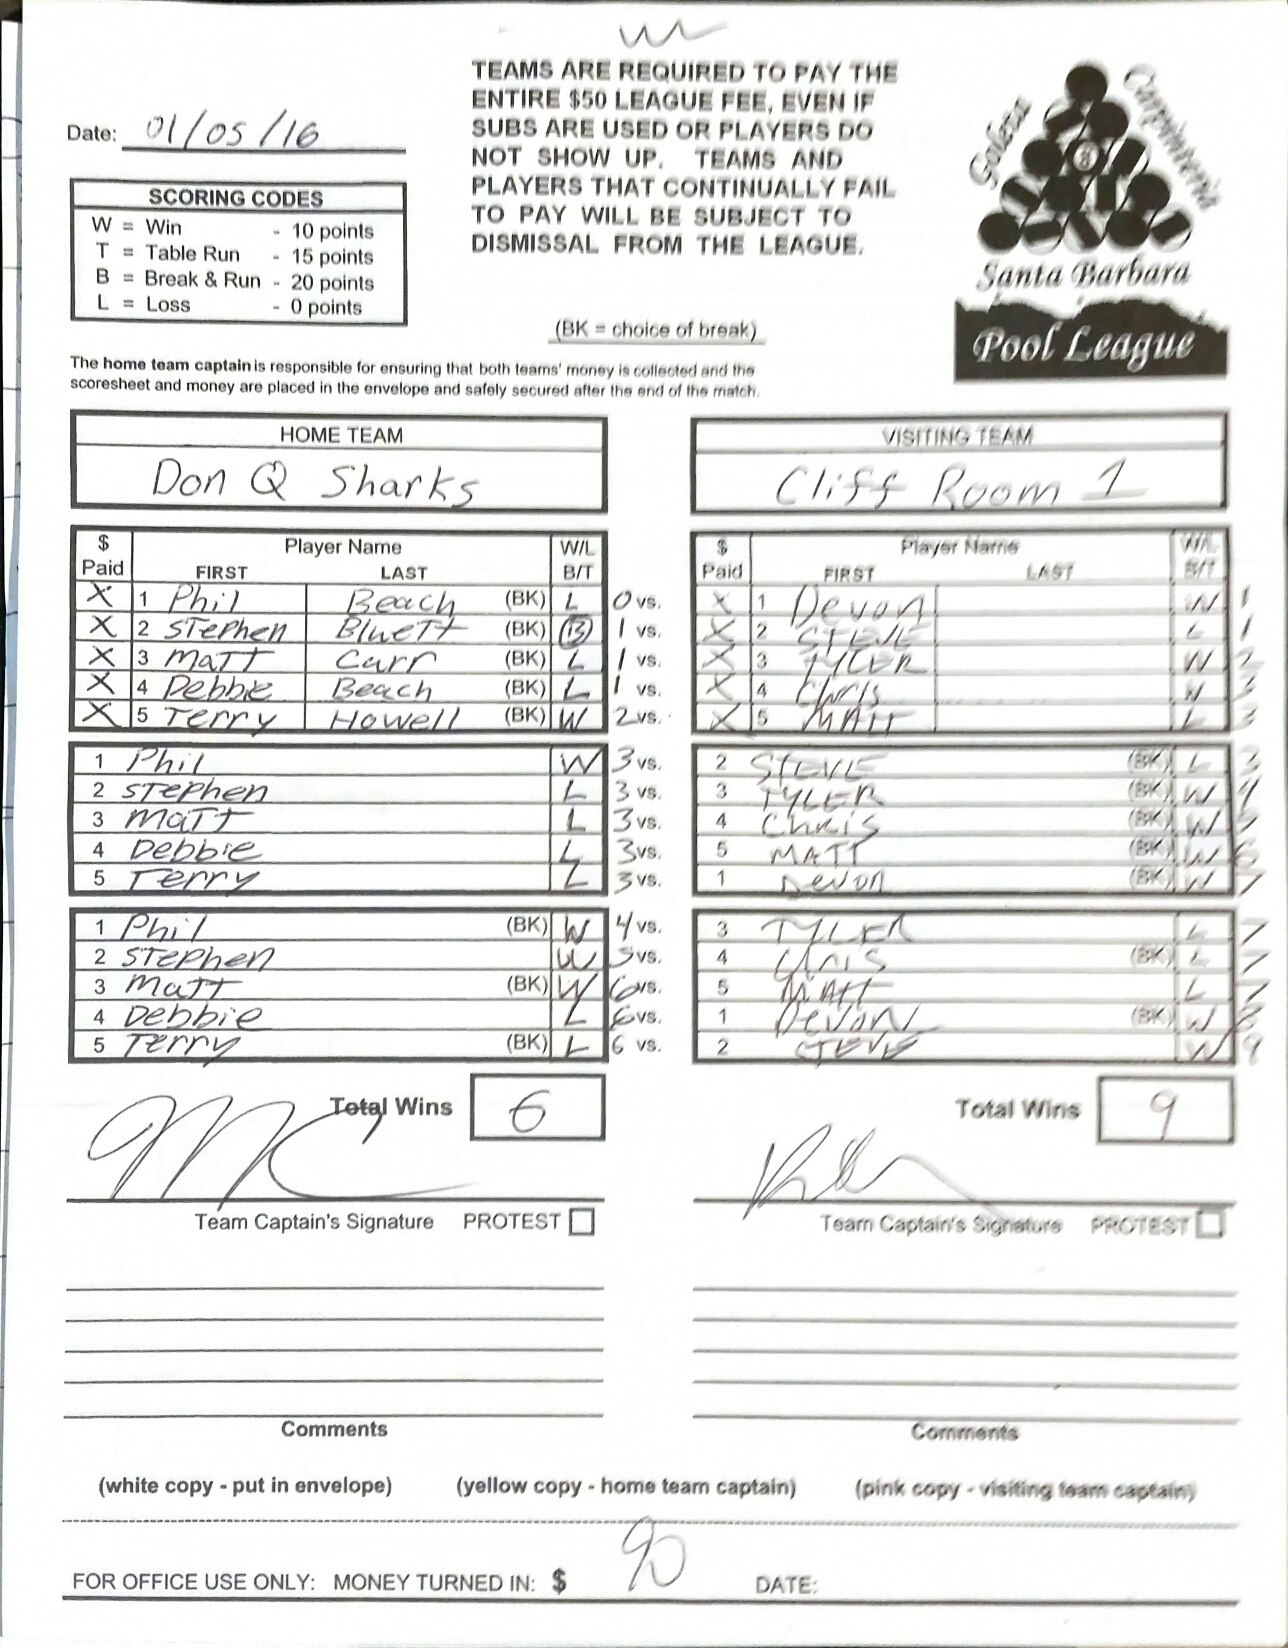 TEAMS ARE REQUIRED TO PAY THE
ENTIRE $50 LEAGUE FEE, EVEN IF
SUBS ARE USED OR PLAYERS DO
NOT SHOW UP. TEAMS AND
PLAYERS THAT CONTINUALLY FAIL
TO PAY WILL BE SUBJECT TO
DISMISSAL FROM THE LEAGUE.
Goleta Carpinteria
8
Santa Barbara
Pool League
Date: 01/05/16
SCORING CODES
W = Win - 10 points
T = Table Run - 15 points
B = Break & Run - 20 points
L = Loss - 0 points
(BK = choice of break)
The home team captain is responsible for ensuring that both teams' money is collected and the
scoresheet and money are placed in the envelope and safely secured after the end of the match.
HOME TEAM VISITING TEAM
Don Q Sharks Cliff Room 1
$ Player Name W/L $ Player Name W/L
Paid FIRST LAST B/T Paid FIRST LAST B/T
X 1 Phil Beach (BK) L 0 vs. X 1 Devon W 1
X 2 Stephen Bluett (BK) B 1 vs. X 2 STEVE L 1
X 3 Matt Carr (BK) L 1 vs. X 3 TYLER W 2
X 4 Debbie Beach (BK) L 1 vs. X 4 Chris W 3
X 5 Terry Howell (BK) W 2 vs. X 5 MATT L 3
1 Phil W 3 vs. 2 STEVE (BK) L 3
2 Stephen L 3 vs. 3 TYLER (BK) W 4
3 Matt L 3 vs. 4 Chris (BK) W 5
4 Debbie L 3 vs. 5 MATT (BK) W 6
5 Terry L 3 vs. 1 Devon (BK) W 7
1 Phil (BK) W 4 vs. 3 TYLER L 7
2 Stephen W 5 vs. 4 Chris (BK) L 7
3 Matt (BK) W 6 vs. 5 MATT L 7
4 Debbie L 6 vs. 1 DEVON (BK) W 8
5 Terry (BK) L 6 vs. 2 STEVE W 9
Total Wins 6 Total Wins 9
Team Captain's Signature PROTEST Team Captain's Signature PROTEST
Comments Comments
(white copy - put in envelope) (yellow copy - home team captain) (pink copy - visiting team captain)
FOR OFFICE USE ONLY: MONEY TURNED IN: $ 90 DATE: